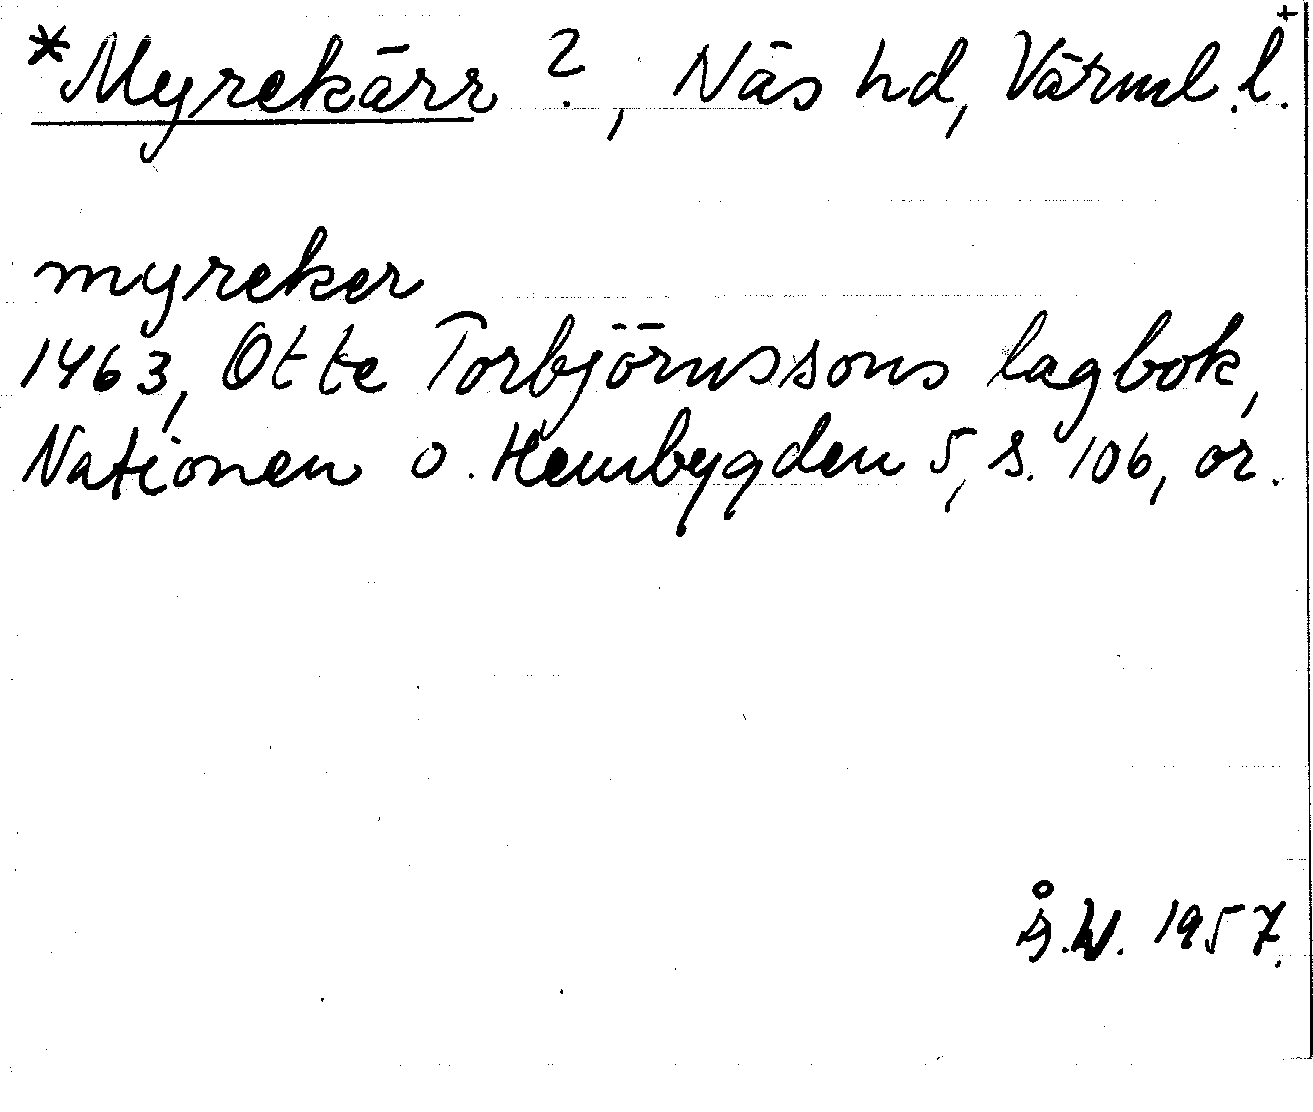 *Myrekärr ?, Näs hd, Värml. l.+
myreker
1463, Otte Torbjörnssons lagbok,
Nationen o. Hembygden 5, s. 106, or.
Å.W. 1957.